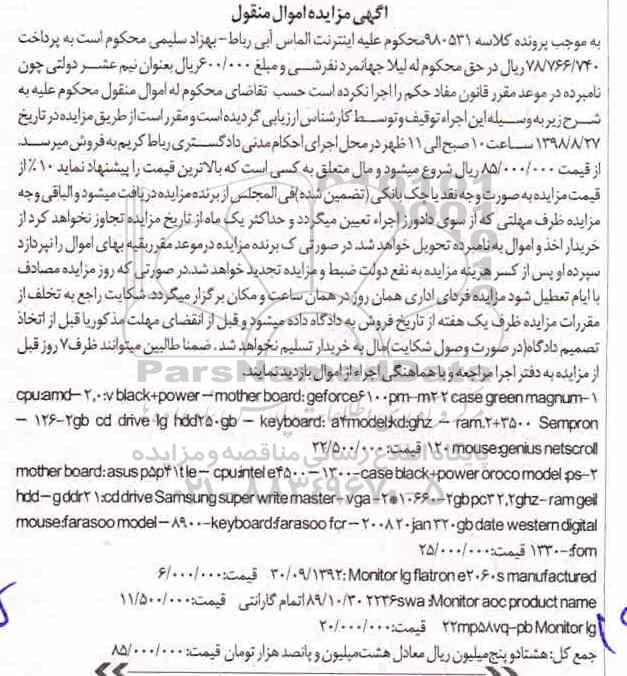 آگهی مزایده اموال منقول
به موجب پرونده کلاسه ۹۸۰۵۳۱ محکوم علیه اینترنت الماس آبی رباط - بهزاد سلیمی محکوم است به پرداخت
۷۸/۷۶۶/۷۴۰ ریال در حق محکوم له لیلا جهانمرد نفرشی و مبلغ ۶۰۰/۰۰۰ ریال بعنوان نیم عشر دولتی چون
نامبرده در موعد مقرر قانون مفاد حکم را اجرا نکرده است حسب تقاضای محکوم له اموال منقول محکوم علیه به
شرح زیر به وسیله این اجراء توقیف و توسط کارشناس ارزیابی گردیده است و مقرر است از طریق مزایده در تاریخ
۱۳۹۸/۸/۲۷ ساعت ۱۰ صبح الی ۱۱ ظهر در محل اجرای احکام مدنی دادگستری رباط کریم به فروش میرسد.
از قیمت ۸۵/۰۰۰/۰۰۰ ریال شروع میشود و مال متعلق به کسی است که بالاترین قیمت را پیشنهاد نماید ۱۰٪ از
قیمت مزایده به صورت وجه نقد یا چک بانکی (تضمین شده) فی المجلس از برنده مزایده دریافت میشود و الباقی وجه
مزایده ظرف مهلتی که از سوی دادورز اجراء تعیین میگردد و حداکثر یک ماه از تاریخ مزایده تجاوز نخواهد کرد از
خریدار اخذ و اموال به نامبرده تحویل خواهد شد. در صورتی ک برنده مزایده در موعد مقرر بقیه بهای اموال را نپردازد
سپرده او پس از کسر هزینه مزایده به نفع دولت ضبط و مزایده تجدید خواهد شد. در صورتی که روز مزایده مصادف
با ایام تعطیل شود مزایده فردای اداری همان روز در همان ساعت و مکان برگزار میگردد. شکایت راجع به تخلف از
مقررات مزایده ظرف یک هفته از تاریخ فروش به دادگاه داده میشود و قبل از انقضای مهلت مذکور یا قبل از اتخاذ
تصمیم دادگاه (در صورت وصول شکایت) مال به خریدار تسلیم نخواهد شد. ضمنا طالبین میتوانند ظرف ۷ روز قبل
از مزایده به دفتر اجرا مراجعه و با هماهنگی اجراء از اموال بازدید نمایند.
cpu:amd – ۲,۰:v black+power – mother board: geforce۶۱۰۰pm-m۲ ۲ case green magnum-۱
– ۱۲۶-۲gb cd drive lg hdd۲۵۰gb – keyboard: a۴model:kd:ghz – ram.۲+۳۵۰۰ Sempron
۱۲۰ mouse:genius netscroll قیمت: ۲۲/۵۰۰/۰۰۰
mother board: asus p۵p۴۱tle – cpu:intel e۴۵۰۰ – ۱۳۰۰-case black+power oroco model :ps-۲
hdd – g ddr۲ ۱:cd drive Samsung super write master – vga – ۲*۱۰۶۶۰-۲gb pc۲ ۲,۲ghz – ram geil
mouse:farasoo model – ۸۹۰۰ -keyboard:farasoo fcr – ۲۰۰۸ ۲۰ jan ۳۲۰gb date western digital
:fom-۱۳۳۰ قیمت: ۲۵/۰۰۰/۰۰۰
۳۰/۰۹/۱۳۹۲: Monitor lg flatron e۲۰۶۰s manufactured قیمت: ۶/۰۰۰/۰۰۰
۸۹/۱۰/۳۰ ۲۲۳۶swa :Monitor aoc product name اتمام گارانتی قیمت: ۱۱/۵۰۰/۰۰۰
۲۲mp۵۸vq-pb Monitor lg قیمت: ۲۰/۰۰۰/۰۰۰
جمع کل: هشتاد و پنج میلیون ریال معادل هشت میلیون و پانصد هزار تومان قیمت: ۸۵/۰۰۰/۰۰۰